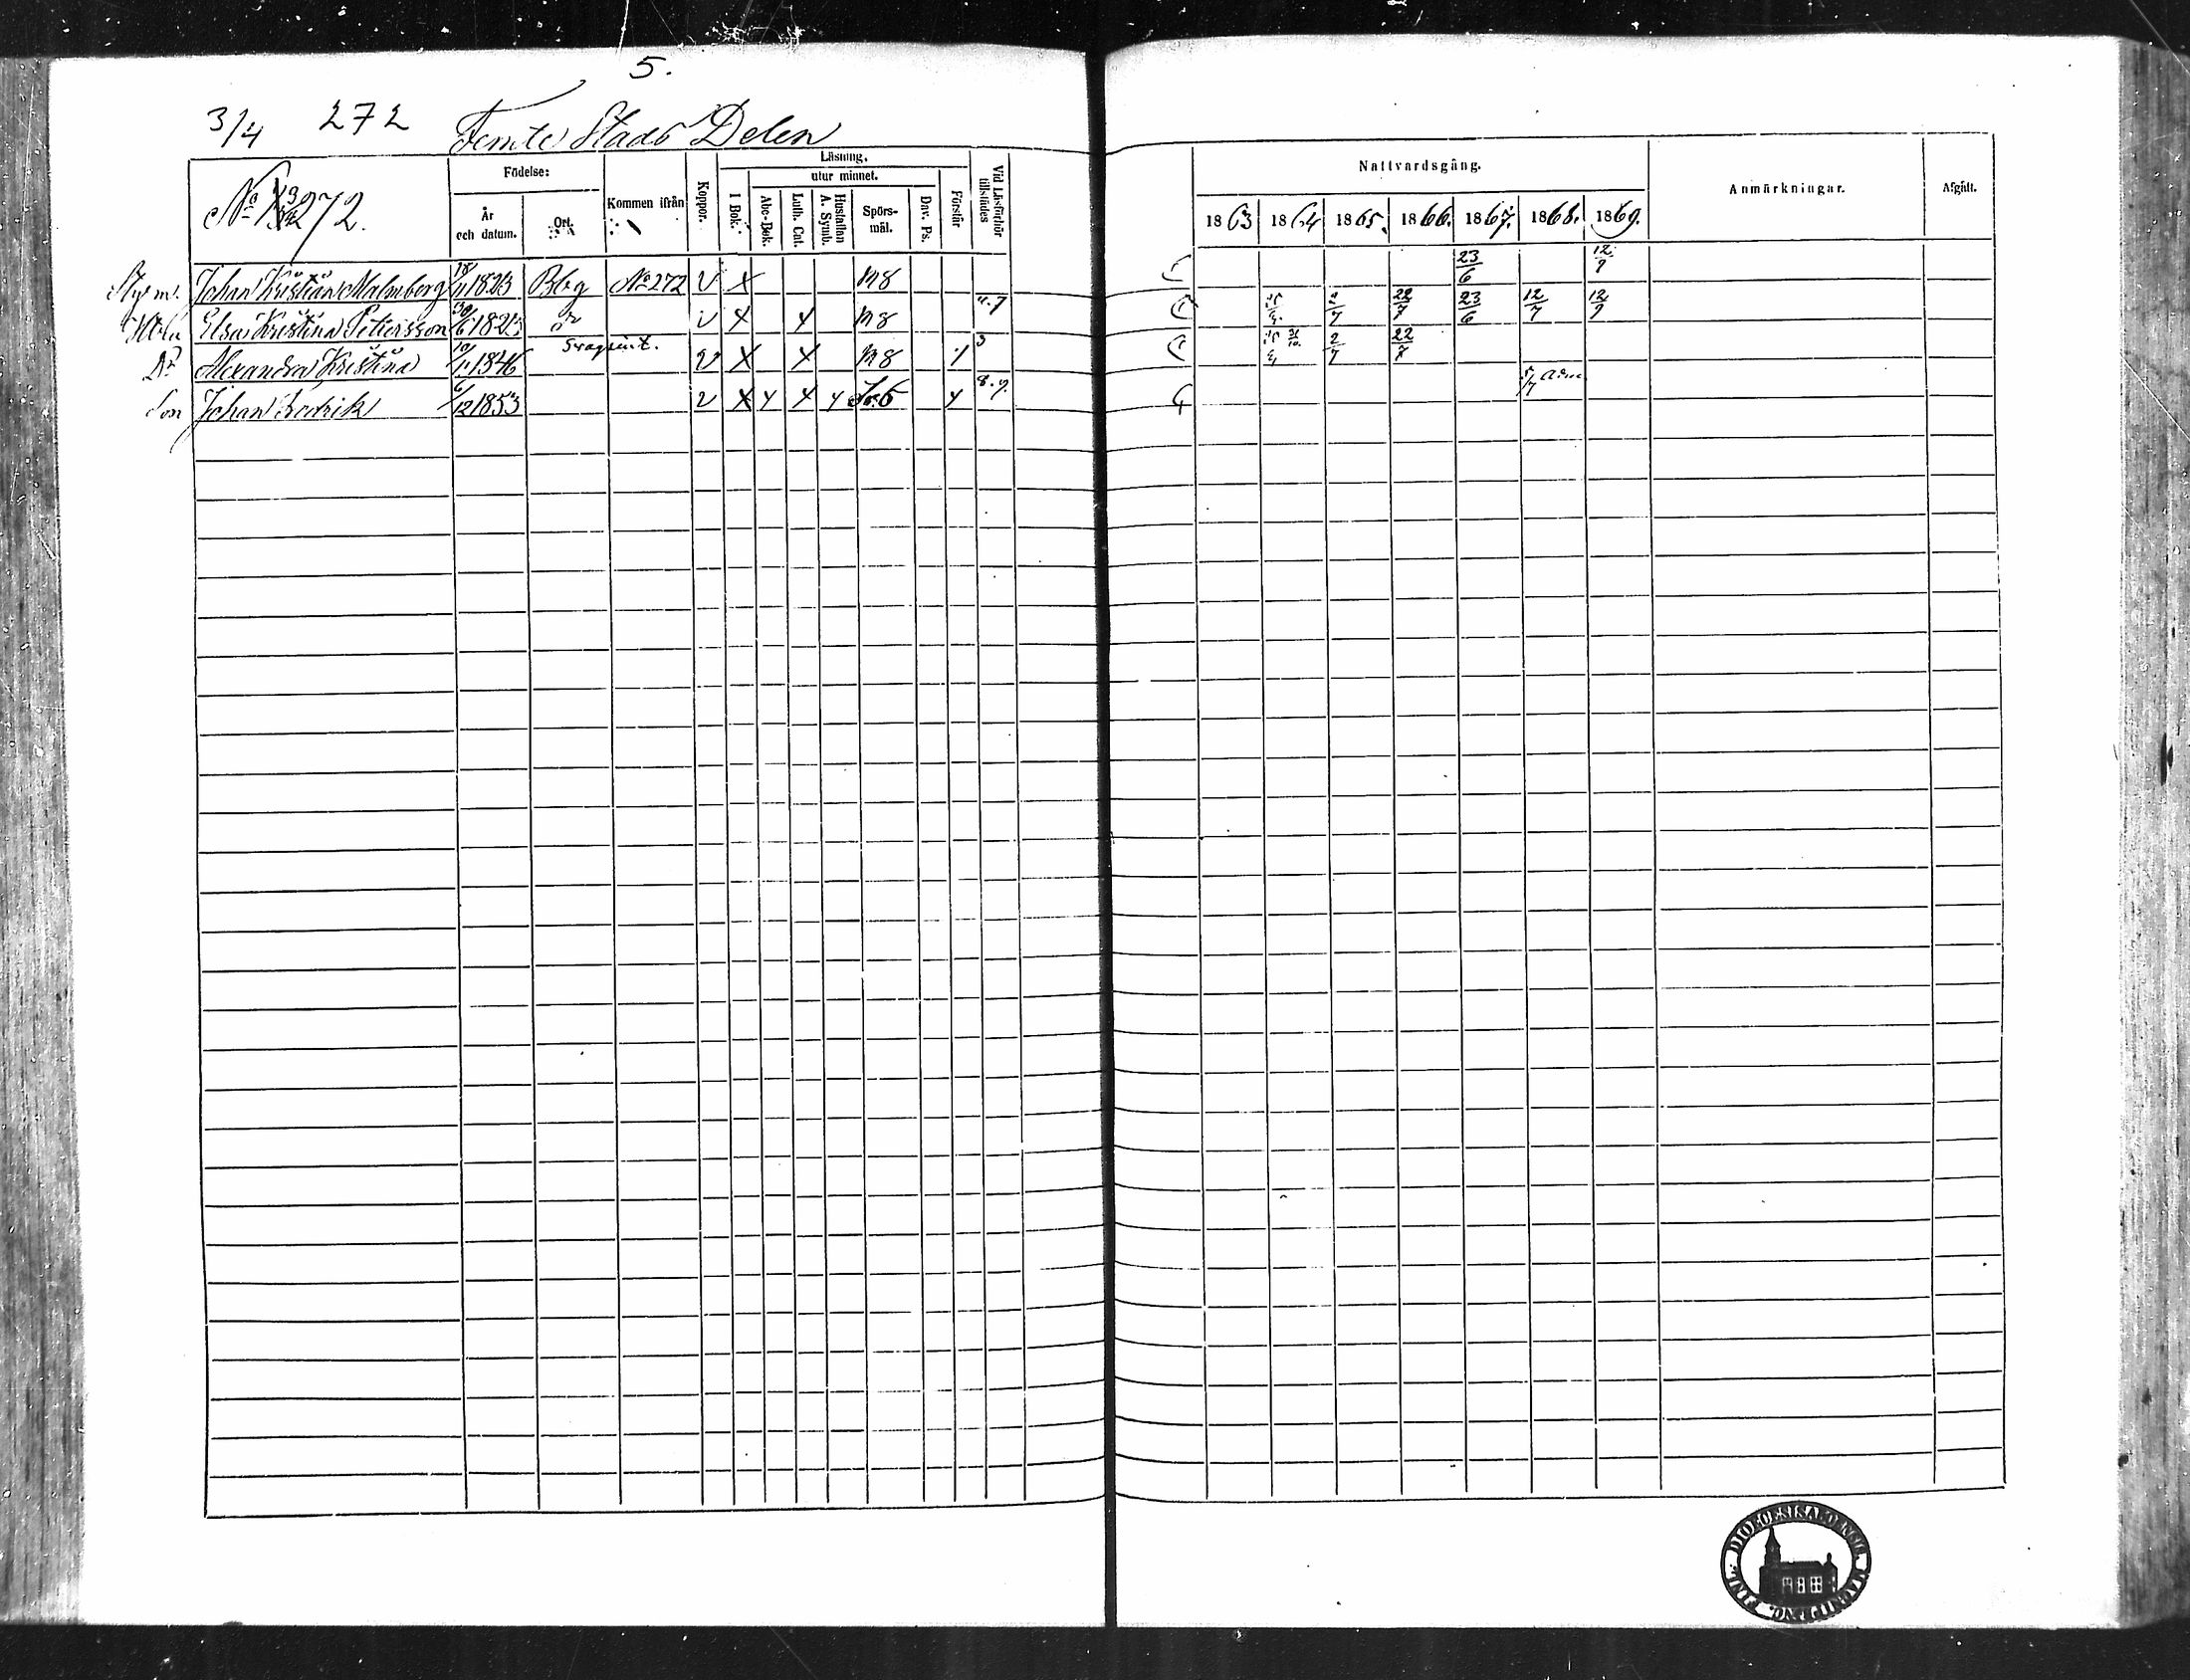 5.
3/4 272 Femte Stads Delen
No 272.
Födelse:
År och datum.
Ort.
Kommen ifrån
Koppor.
Läsning.
I Bok.
utur minnet.
Abc-Bok.
Luth. Cat.
Hustaflan A. Symb.
Spörs-mål.
Dav. Ps.
Förstår
Vid Läsförhör tillstädes
Nattvardsgång.
1863 1864 1865. 1866. 1867. 1868. 1869.
Anmärkningar.
Afgått.
Styrm. Johan Kristian Malmberg 18/11 1823 Bbg No 272 v x m8 23/6 12/9
Elsa Kristina Petersson 30/6 1823 v x x m8 4.7 2/7 22/7 23/6 12/7 12/9
Dr Alexandra Kristina 10/11 1846 v x x m8 3 31/10 2/7 22/7
Son Johan Fredrik 6/12 1853 v x x 8.9. 5/7 adm
DIOECESIS ABOENSIS. MAGNI PRINC. FINL.